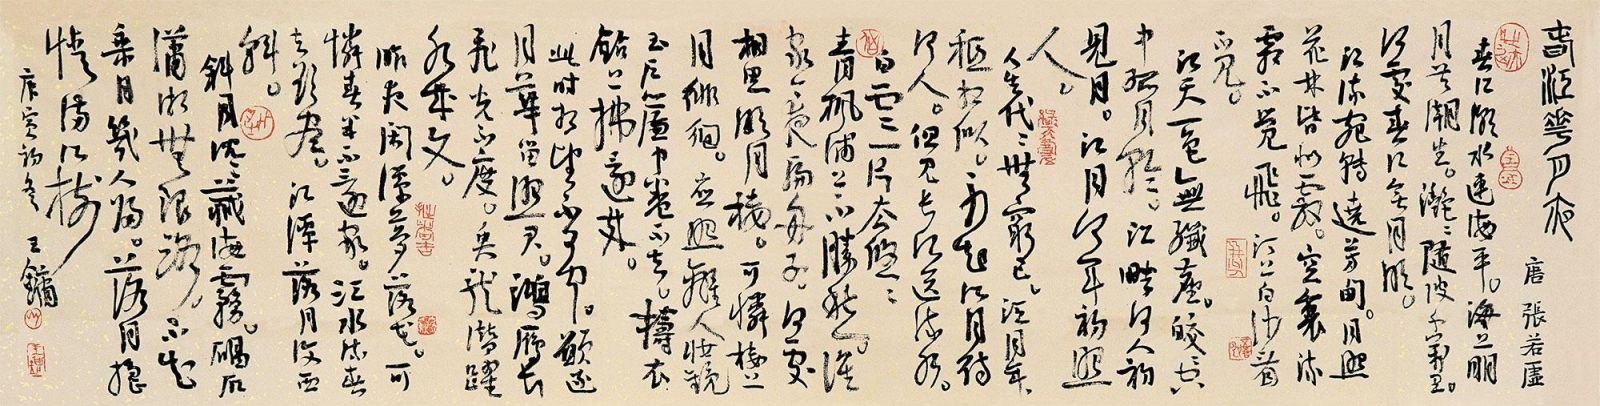 春江花月夜
唐 張若虛
春江潮水連海平。海上明
月共潮生。灩〻隨波千萬里。
何處春江無月明。
江流宛轉遶芳甸。月照
花林皆似霰。空裏流
霜不覺飛。汀上白沙看
不見。
江天一色無纖塵。皎〻空
中孤月輪。江畔何人初
見月。江月何年初照
人。
人生代〻無窮已。江月年〻
祗相似。不知江月待
何人。但見長江送流水。
白雲一片去悠〻
青楓浦上不勝愁。誰
家今夜扁舟子。何處
相思明月樓。可憐樓上
月徘徊。應照離人妝鏡
玉戶簾中卷不去。擣衣
砧上拂還來。
此時相望不相聞。願逐
月華留照君。鴻雁長
飛光不度。魚龍潛躍
水成文。
昨夜閑潭夢落花。可
憐春半不還家。江水流春
去欲盡。江潭落月復西
斜。
斜月沉〻藏海霧。碣石
瀟湘無限路。不知
乘月幾人歸。落月搖
情滿江樹
庚寅初冬 王鏞